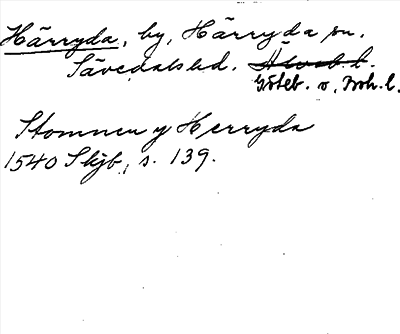 Härryda, by, Härryda sn.
Sävedals hd. Älvsb. l.
Göteb. o. Boh. l.
Stommen y Herryda
1540 Skjb, s. 139.